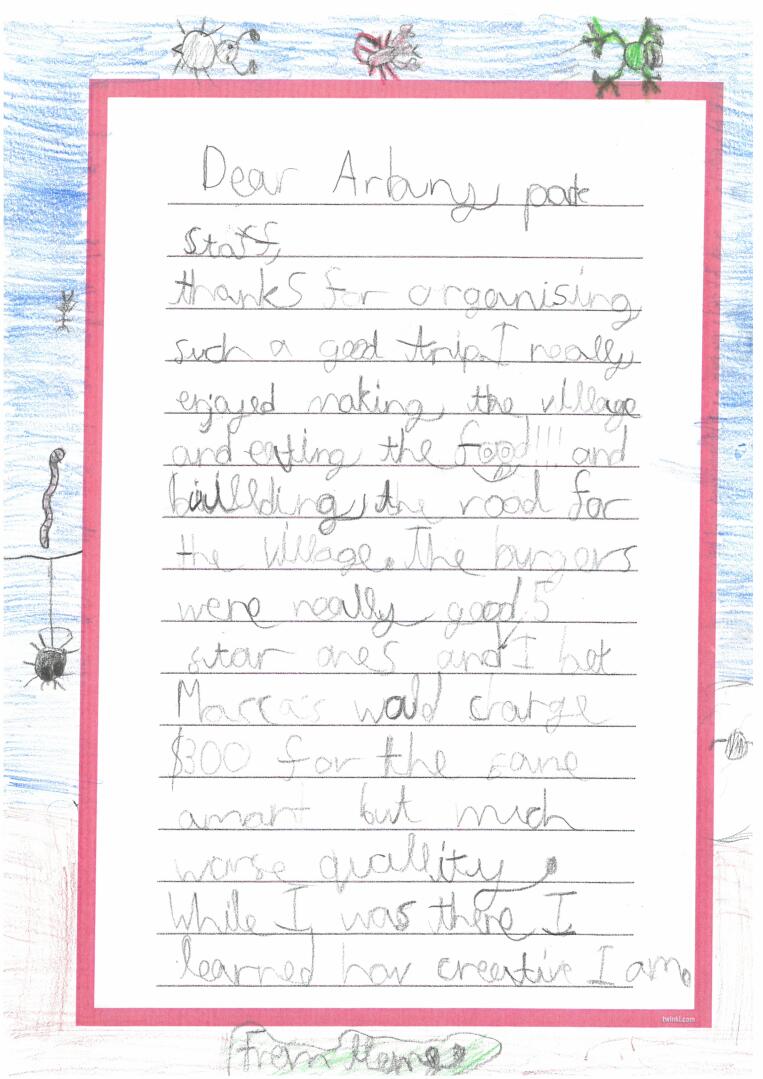 Dear Arbury park
staff,
thanks for organising
such a good trip. I really
enjoyed making the village
and eating the food!!! and
buillding the road for
the village. The burgers
were really good 5
star ones and I bet
Macca's would charge
$300 for the same
amant but much
worse quallity.
While I was there I
learned how creative I am.
twinkl.com
From